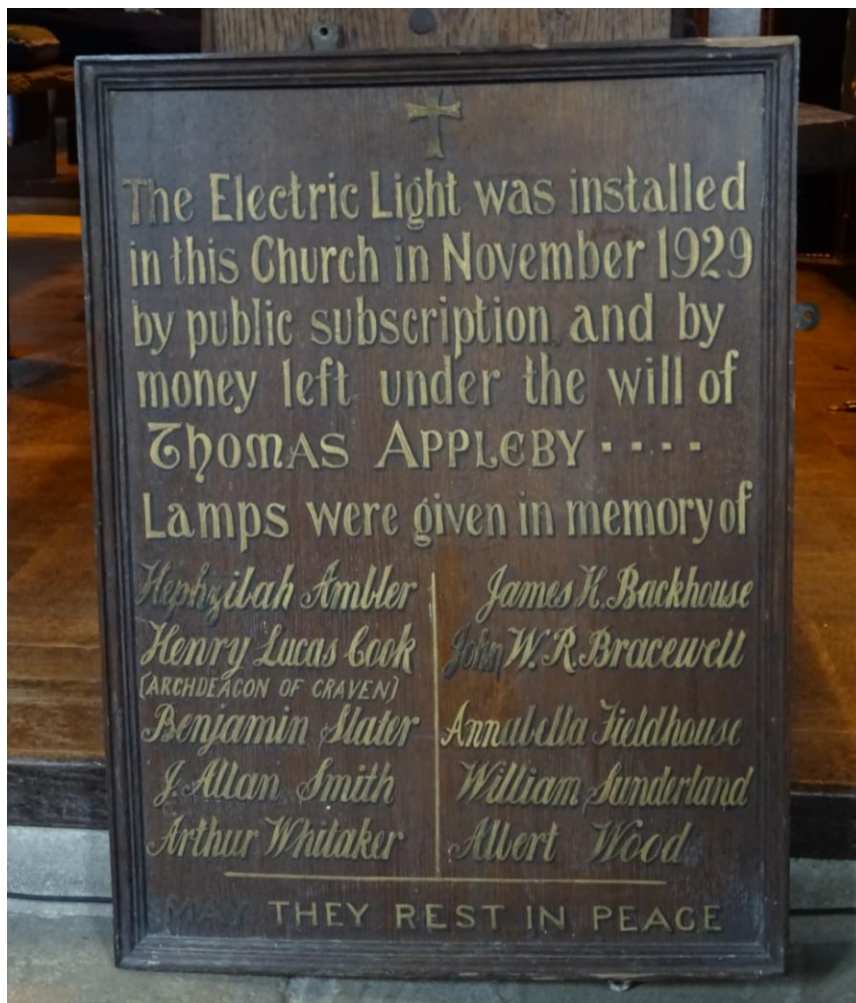 The Electric Light was installed
in this Church in November 1929
by public subscription and by
money left under the will of
THOMAS APPLEBY ....
Lamps were given in memory of
Hephzibah Ambler
Henry Lucas Cook
(ARCHDEACON OF CRAVEN)
Benjamin Slater
J. Allan Smith
Arthur Whitaker
James H. Backhouse
John W. R. Bracewell
Annabella Fieldhouse
William Sunderland
Albert Wood
MAY THEY REST IN PEACE